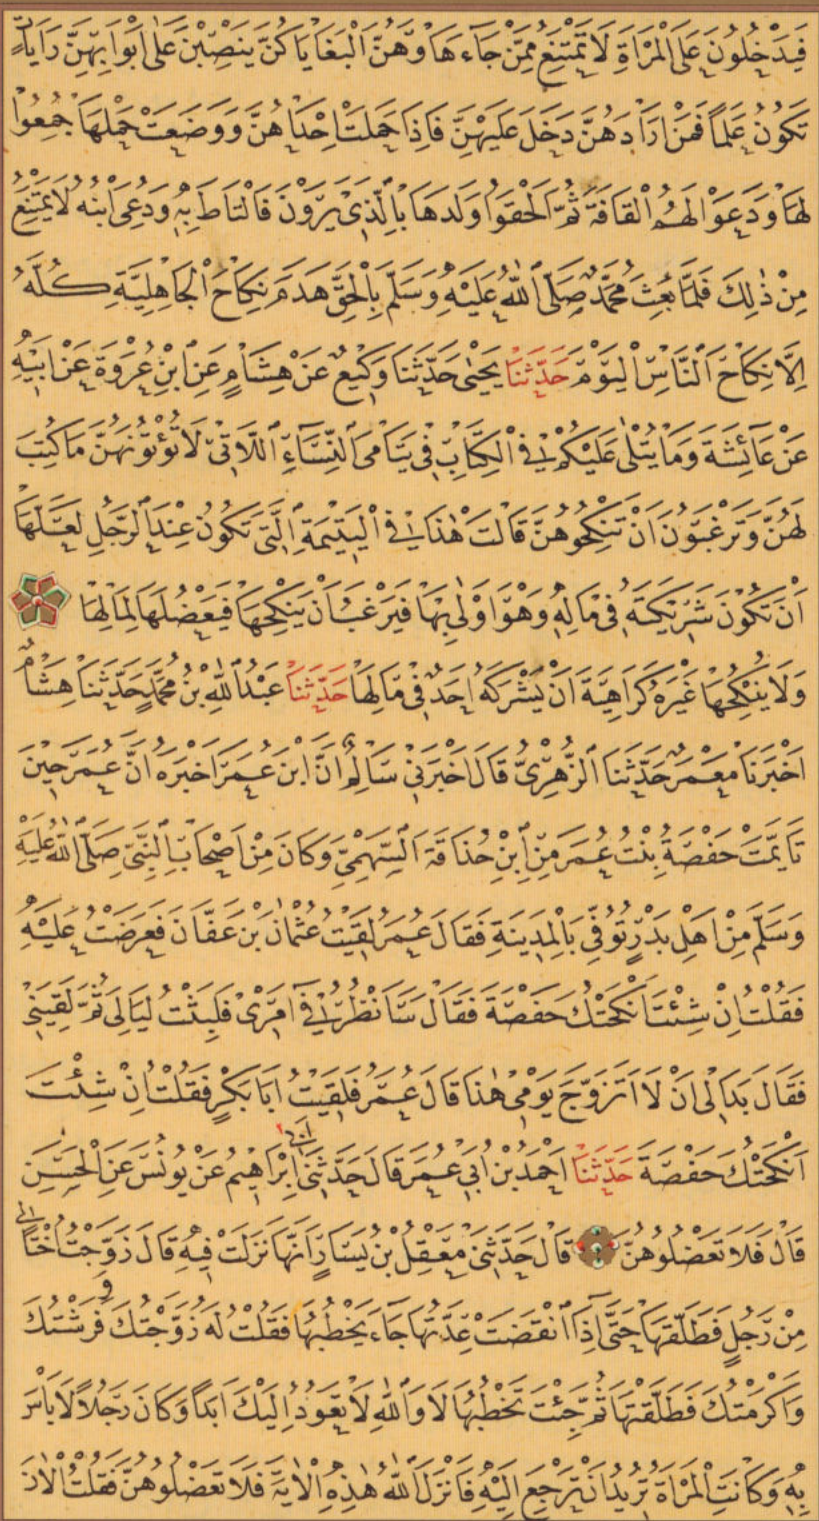 فَيَدْخُلُونَ عَلَى الْمَرْأَةِ لَا تَمْتَنِعُ مِمَّنْ جَاءَهَا وَهُنَّ الْبَغَايَا كُنَّ يَنْصِبْنَ عَلَى اَبْوَابِهِنَّ رَايَاتٍ
تَكُونُ عَلَمًا فَمَنْ اَرَادَهُنَّ دَخَلَ عَلَيْهِنَّ فَاِذَا حَمَلَتْ اِحْدَاهُنَّ وَوَضَعَتْ حَمْلَهَا جُمِعُوا
لَهَا وَدَعَوْا لَهُمُ الْقَافَةَ ثُمَّ اَلْحَقُوا وَلَدَهَا بِالَّذِي يَرَوْنَ فَالْتَاطَ بِهِ وَدُعِيَ ابْنُهُ لَا يَمْتَنِعُ
مِنْ ذٰلِكَ فَلَمَّا بُعِثَ مُحَمَّدٌ صَلَّى اللّٰهُ عَلَيْهِ وَسَلَّمَ بِالْحَقِّ هَدَمَ نِكَاحَ الْجَاهِلِيَّةِ كُلَّهُ
اِلَّا نِكَاحَ النَّاسِ الْيَوْمَ حَدَّثَنَا يَحْيٰى حَدَّثَنَا وَكِيعٌ عَنْ هِشَامٍ عَنِ ابْنِ عُرْوَةَ عَنْ اَبِيهِ
عَنْ عَائِشَةَ وَمَا يُتْلٰى عَلَيْكُمْ فِي الْكِتَابِ فِي يَتَامَى النِّسَاءِ اللَّاتِي لَا تُؤْتُونَهُنَّ مَا كُتِبَ
لَهُنَّ وَتَرْغَبُونَ اَنْ تَنْكِحُوهُنَّ قَالَتْ هٰذَا فِي الْيَتِيمَةِ الَّتِي تَكُونُ عِنْدَ الرَّجُلِ لَعَلَّهَا
اَنْ تَكُونَ شَرِيكَتَهُ فِي مَالِهِ وَهْوَ اَوْلٰى بِهَا فَيَرْغَبُ اَنْ يَنْكِحَهَا فَيَعْضُلَهَا لِمَالِهَا
وَلَا يُنْكِحُهَا غَيْرَهُ كَرَاهِيَةَ اَنْ يَشْرَكَهُ اَحَدٌ فِي مَالِهَا حَدَّثَنَا عَبْدُ اللّٰهِ بْنُ مُحَمَّدٍ حَدَّثَنَا هِشَامٌ
اَخْبَرَنَا مَعْمَرٌ حَدَّثَنَا الزُّهْرِيُّ قَالَ اَخْبَرَنِي سَالِمٌ اَنَّ ابْنَ عُمَرَ اَخْبَرَهُ اَنَّ عُمَرَ حِينَ
تَاَيَّمَتْ حَفْصَةُ بِنْتُ عُمَرَ مِنِ ابْنِ حُذَافَةَ السَّهْمِيِّ وَكَانَ مِنْ اَصْحَابِ النَّبِيِّ صَلَّى اللّٰهُ عَلَيْهِ
وَسَلَّمَ مِنْ اَهْلِ بَدْرٍ تُوُفِّيَ بِالْمَدِينَةِ فَقَالَ عُمَرُ لَقِيتُ عُثْمٰانَ بْنَ عَفَّانَ فَعَرَضْتُ عَلَيْهِ
فَقُلْتُ اِنْ شِئْتَ اَنْكَحْتُكَ حَفْصَةَ فَقَالَ سَاَنْظُرُ فِي اَمْرِي فَلَبِثْتُ لَيَالِيَ ثُمَّ لَقِيَنِي
فَقَالَ بَدَا لِي اَنْ لَا اَتَزَوَّجَ يَوْمِي هٰذَا قَالَ عُمَرُ فَلَقِيتُ اَبَا بَكْرٍ فَقُلْتُ اِنْ شِئْتَ
اَنْكَحْتُكَ حَفْصَةَ حَدَّثَنَا اَحْمَدُ بْنُ اَبِي عُمَرَ قَالَ حَدَّثَنِي اَبِي اِبْرَاهِيمُ عَنْ يُونُسَ عَنِ الْحَسَنِ
قَالَ فَلَا تَعْضُلُوهُنَّ قَالَ حَدَّثَنِي مَعْقِلُ بْنُ يَسَارٍ اَنَّهَا نَزَلَتْ فِيهِ قَالَ زَوَّجْتُ اُخْتًا لِي
مِنْ رَجُلٍ فَطَلَّقَهَا حَتَّى اِذَا انْقَضَتْ عِدَّتُهَا جَاءَ يَخْطُبُهَا فَقُلْتُ لَهُ زَوَّجْتُكَ وَفَرَشْتُكَ
وَاَكْرَمْتُكَ فَطَلَّقْتَهَا ثُمَّ جِئْتَ تَخْطُبُهَا لَا وَاللّٰهِ لَا تَعُودُ اِلَيْكَ اَبَدًا وَكَانَ رَجُلًا لَا بَأْسَ
بِهِ وَكَانَتِ الْمَرْاَةُ تُرِيدُ اَنْ تَرْجِعَ اِلَيْهِ فَاَنْزَلَ اللّٰهُ هٰذِهِ الْاٰيَةَ فَلَا تَعْضُلُوهُنَّ فَقُلْتُ الْاٰنَ